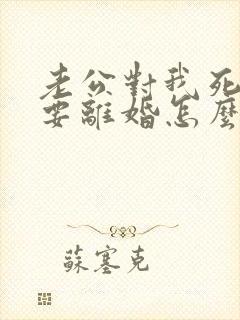 老公對我死
要離婚怎麼
蘇塞克